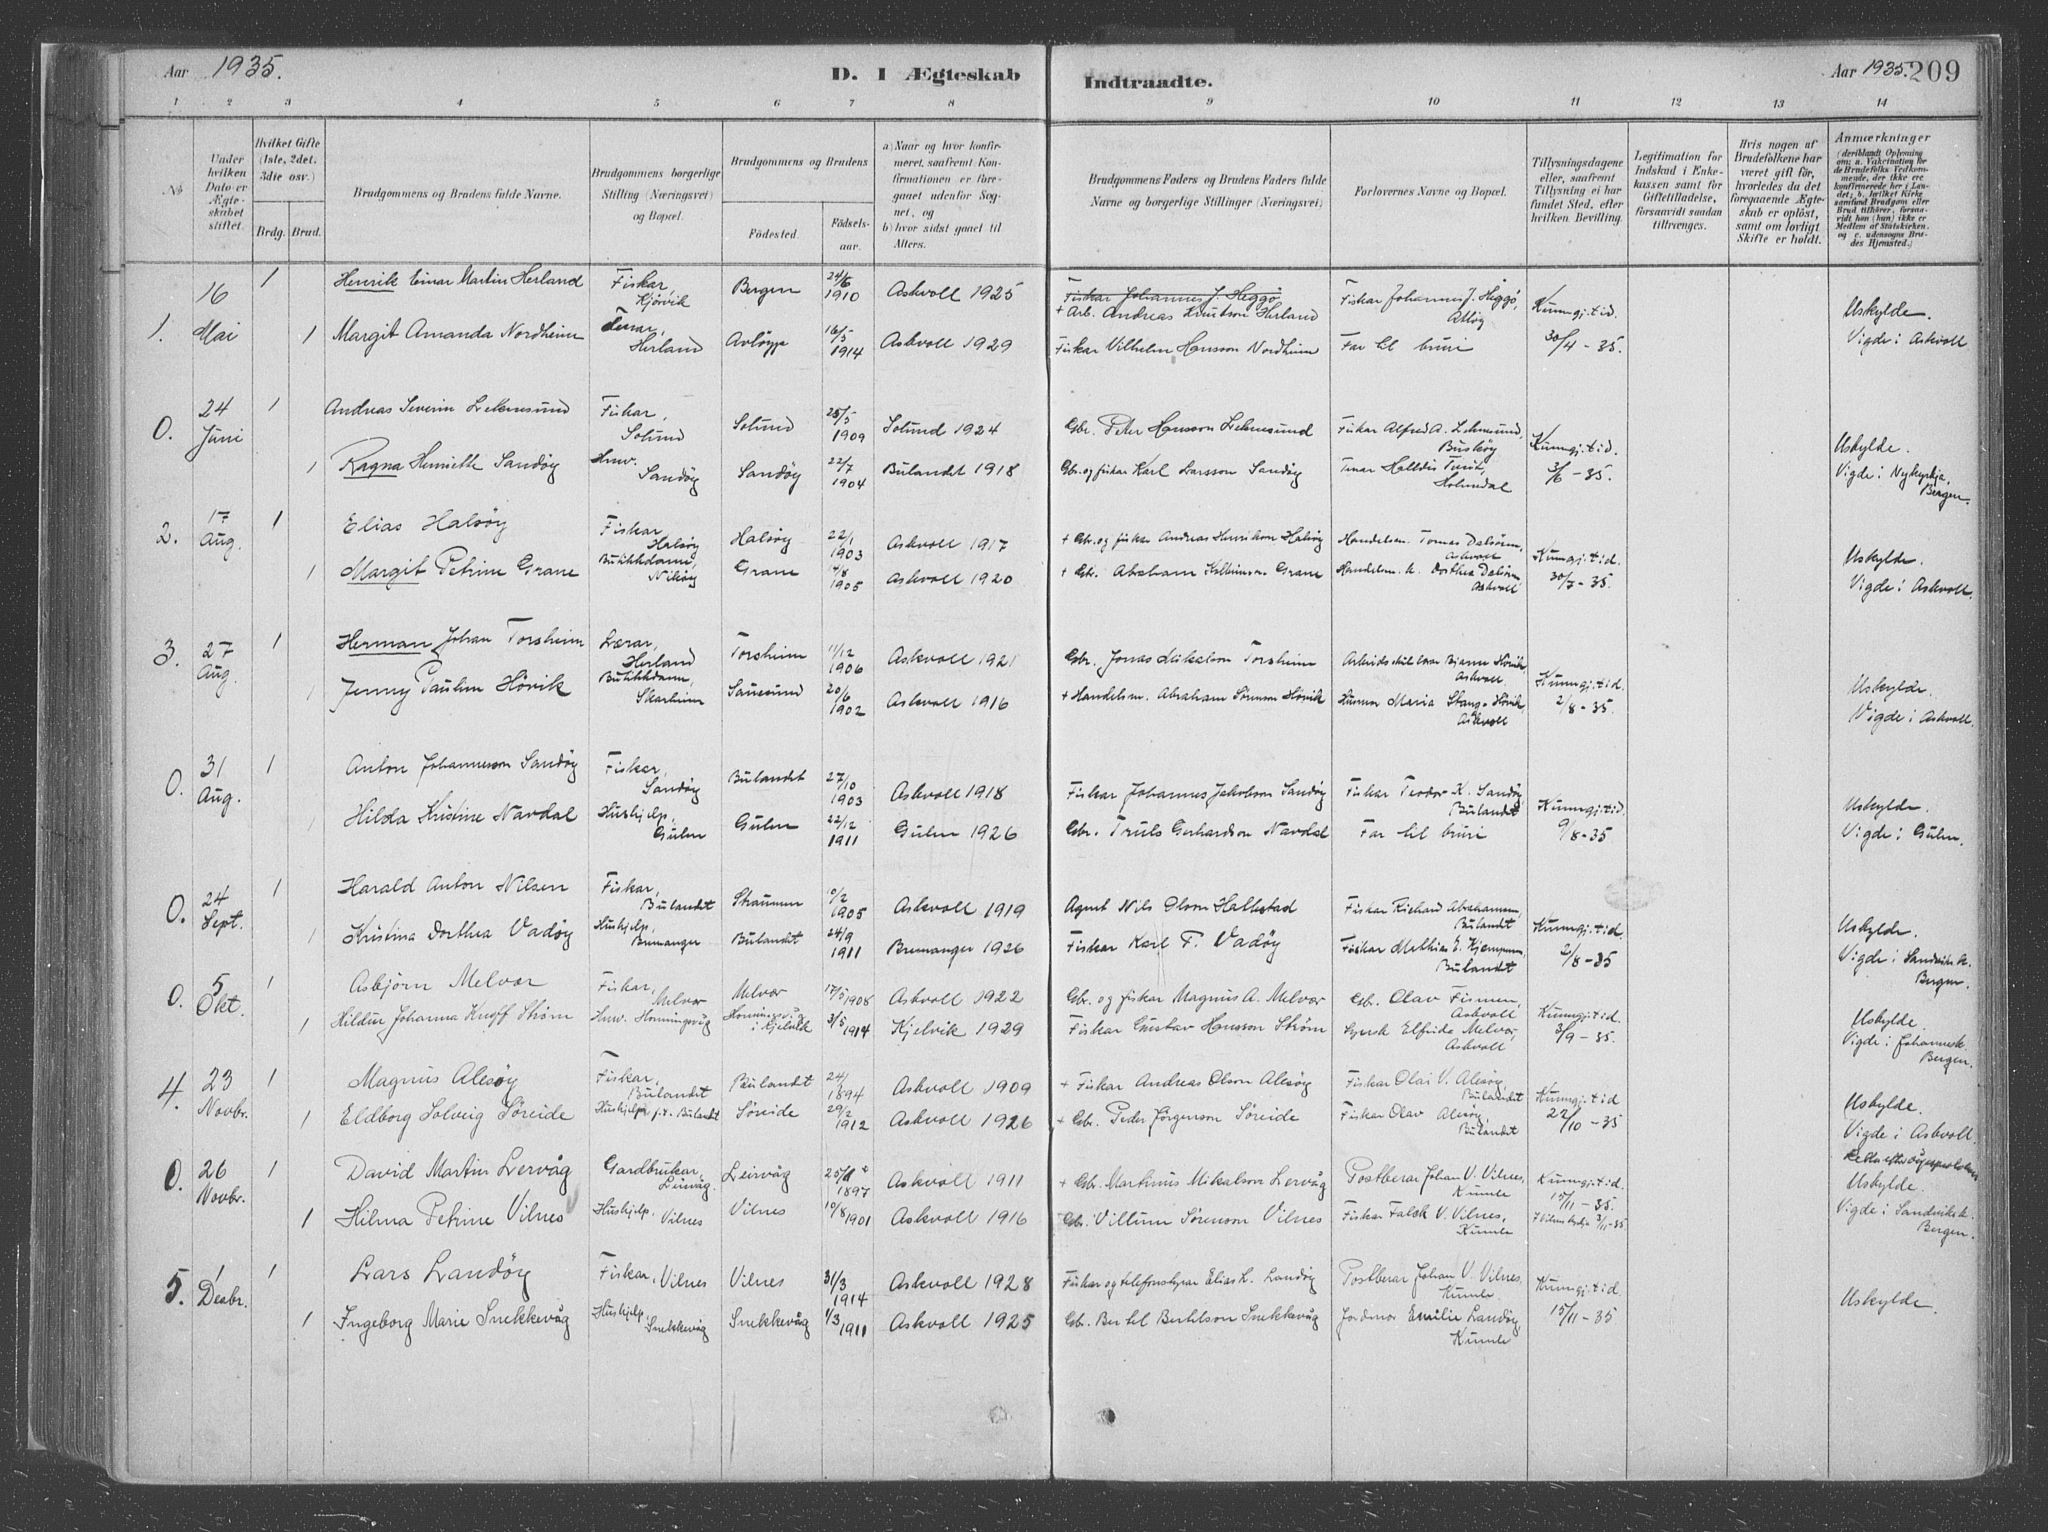 Aar 1935.
D. I Ægteskab
Indtraadte.
Aar 1935. 209
1 2 3 4 5 6 7 8 9 10 11 12 13 14
No
Under hvilken Dato er Ægteskabet stiftet.
Hvilket Gifte (1ste, 2det, 3die osv.)
Brdg. Brud.
Brudgommens og Brudens fulde Navne.
Brudgommens borgerlige Stilling (Næringsvei) og Bopæl.
Brudgommens og Brudens
Födested.
Födselsaar.
a) Naar og hvor konfirmeret, saafremt Konfirmationen er foregaaet udenför Sognet, og
b) hvor sidst gaaet til Alters.
Brudgommens Faders og Brudens Faders fulde Navne og borgerlige Stillinger (Næringsvei)
Forlovernes Navne og Bopæl.
Tillysningsdagene eller, saafremt Tillysning ei har fundet Sted, efter hvilken Bevilling.
Legitimation for Indskud i Enkekassen samt for Giftetilladelse, forsaavidt saadan tiltrænges.
Hvis nogen af Brudefolkene har været gift för, hvorledes da det foregaaende Ægteskab er oplöst, samt om lovligt Skifte er holdt.
Anmærkninger
1. 16 Mai 1 Henrik Einar Martin Herland Fiskar, Kjörvik Bergen 24/6 1910 Askvoll 1925 Fiskar Johannes J. Heggö + Arb. Andreas Knutson Herland Fiskar Johannes J. Heggö, Atlöy Kunngj. t.id. 30/4 - 35. Uskylde. Vigde i Askvoll
1 Margit Amanda Nordheim Tenar, Herland 16/5 1914 Askvoll 1929 Fiskar Vilhelm Hansson Nordheim Far til bruri
0. 24 Juni 1 Andreas Severin Fiskar, Solund Solund 25/5 1909 Solund 1924 Gbr. Peter Hansson Fiskar Alfred A. Kunngj. t.id. 3/6 - 35. Uskylde. Vigde i Nykyrkja, Bergen.
1 Ragna Henriette Sandöy Hmv. Sandöy Sandöy 22/7 1904 Bulandet 1918 Gbr. og fiskar Karl Larsson Sandöy Holmedal
2. 17 Aug. 1 Elias Halsöy Fiskar, Halsöy Halsöy 22/1 1903 Askvoll 1917 + Gbr. og fiskar Andreas Henrikson Halsöy Handelsm. Tomas Dalsören, Askvoll Kunngj. t.id. 30/7 - 35. Uskylde. Vigde i Askvoll.
1 Margit Petrine Grane Butikkdame, Grane 4/8 1905 Askvoll 1920 + Gbr. Abraham Grane Handelsm. k. Dorthea Dalsören Askvoll
3. 27 Aug. 1 Herman Johan Torsheim Lærar, Herland Torsheim 11/12 1906 Askvoll 1921 Gbr. Jonas Mikalson Torsheim Bjarne Hövik, Askvoll Kunngj. t.id. 2/8 - 35. Uskylde. Vigde i Askvoll.
1 Jenny Paulin Hövik Butikkdame, Skarheim Sauesund 20/6 1902 Askvoll 1916 + Handelsm. Abraham Sörenson Hövik Husmor Maria Stang-Hövik, Askvoll
0. 31 Aug. 1 Anton Johannesson Sandöy Fiskar, Sandöy Bulandet 27/10 1903 Askvoll 1918 Fiskar Johannes Jakobson Sandöy Fiskar Teodor K. Sandöy, Bulandet Kunngj. t.id. 9/8 - 35 Uskylde. Vigde i Gulen.
1 Hilda Kristine Navdal Hushjelp, Gulen Gulen 22/12 1911 Gulen 1926 Gbr. Truls Gerhardson Navdal Far til bruri
0. 24 Sept. 1 Harald Anton Nilsen Fiskar, Bulandet Straumen 10/2 1905 Askvoll 1919 Agent Nils Olson Hallestad Fiskar Richard Abrahamsen, Bulandet Kunngj. t.id. 2/8 - 35 Uskylde. Vigde i Sandvik k. Bergen.
1 Kristina Dorthea Vadöy Hushjelp, Bremanger Bulandet 24/9 1911 Bremanger 1926 Fiskar Karl F. Vadöy Fiskar Mathias E. Bulandet
0. 5 Okt. 1 Asbjörn Melvær Fiskar, Melvær Melvær 17/5 1908 Askvoll 1922 Gbr. og fiskar Magnus A. Melvær Gbr. Olav Askvoll Kunngj. t.id. 3/9 - 35. Uskylde. Vigde i Johannesk. Bergen.
1 Hildur Johanna Knoff Ström Hmv. Honningsvåg Honningsvåg i Kjelvik 3/5 1914 Kjelvik 1929 Fiskar Gustav Hansson Ström Elfrida Melvær, Askvoll
4. 23 Novbr. 1 Magnus Alesöy Fiskar, Bulandet Bulandet 24/1 1894 Askvoll 1909 + Fiskar Andreas Olson Alesöy Fiskar Olai V. Alesöy, Bulandet Kunngj. t.id 22/10 - 35 Uskylde. Vigde i Askvoll.
1 Eldborg Solveig Söreide Hushjelp f.t. Bulandet Söreide 29/2 1912 Askvoll 1926 + Gbr. Peder Jörgenson Söreide Fiskar Olav Alesöy, Bulandet
0. 26 Novbr. 1 David Martin Lervåg Gardbrukar, Leirvåg. Leirvåg 1897 Askvoll 1911 + Gbr. Martinus Mikalson Lervåg Postberar Johan V. Vilnes, Kumle Kunngj. t.id. 15/11 - 35. Uskylde. Vigde i Sandvikek. Bergen.
1 Hilma Petrine Vilnes Hushjelp, Vilnes Vilnes 10/8 1901 Askvoll 1916 Gbr. Villum Sörenson Vilnes Fiskar Falck V. Vilnes, Kumle
5. 1 Desbr. 1 Lars Landöy Fiskar, Vilnes Vilnes 31/3 1914 Askvoll 1928 Fiskar og telefonstyrar Elias L. Landöy Postberar Johan V. Vilnes, Kumle Kunngj. t.id. 15/11 - 35 Uskylde.
1 Ingeborg Marie Snekkevåg Hushjelp, Snekkevåg Snekkevåg 1/3 1911 Askvoll 1925 Gbr. Bertel Bertelson Snekkevåg Jordmor Emilie Landöy, Kumle